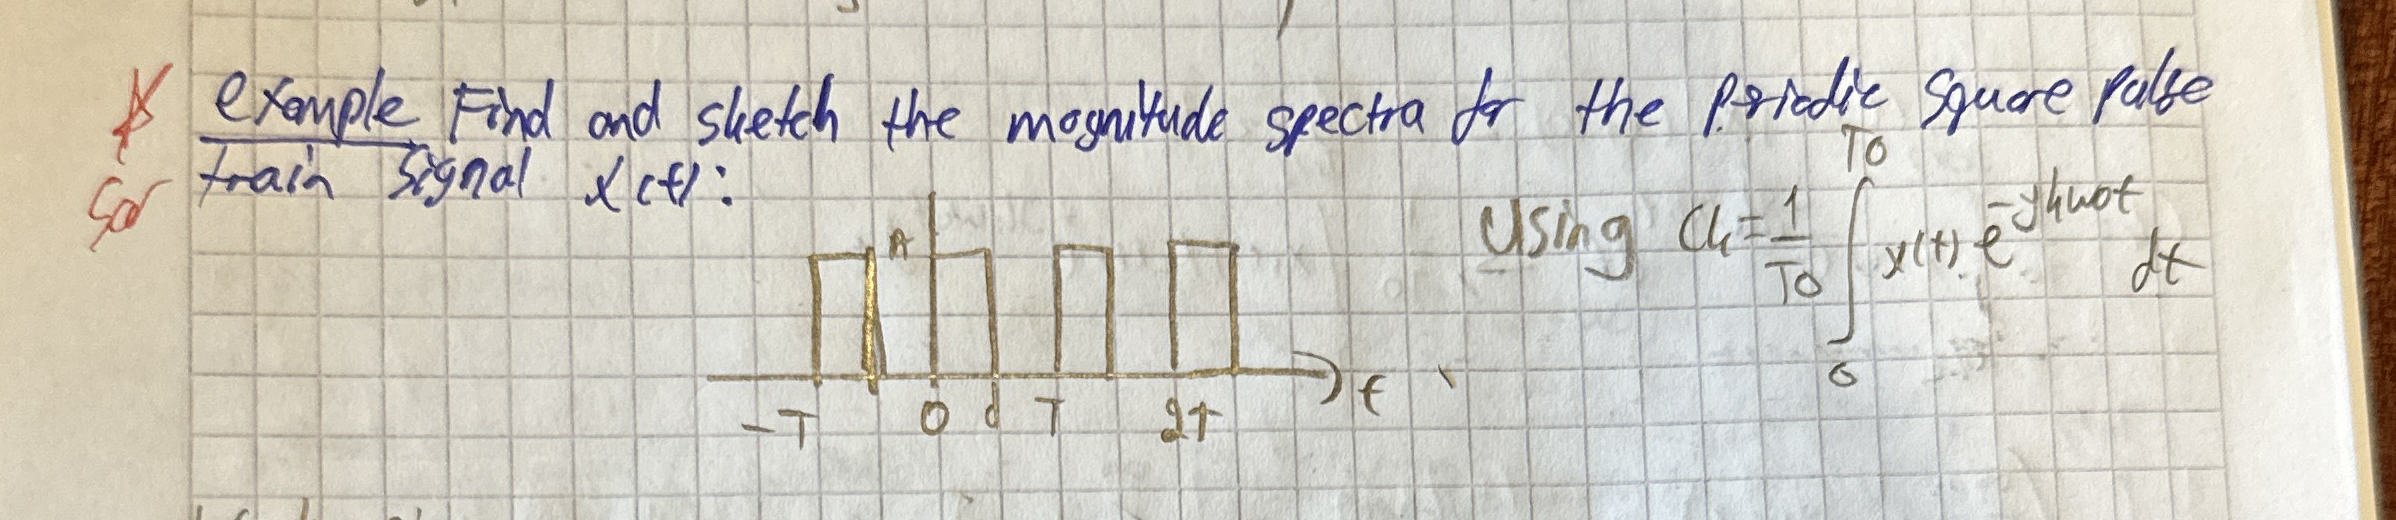 example Find and sketch the magnitude spectra for the Periodic Square pulse
train signal x(t):
Sor
Using Ck = 1/T0 ∫ 0 T0 x(t). e^-jkw0t dt
A
-T 0 d T 2T t